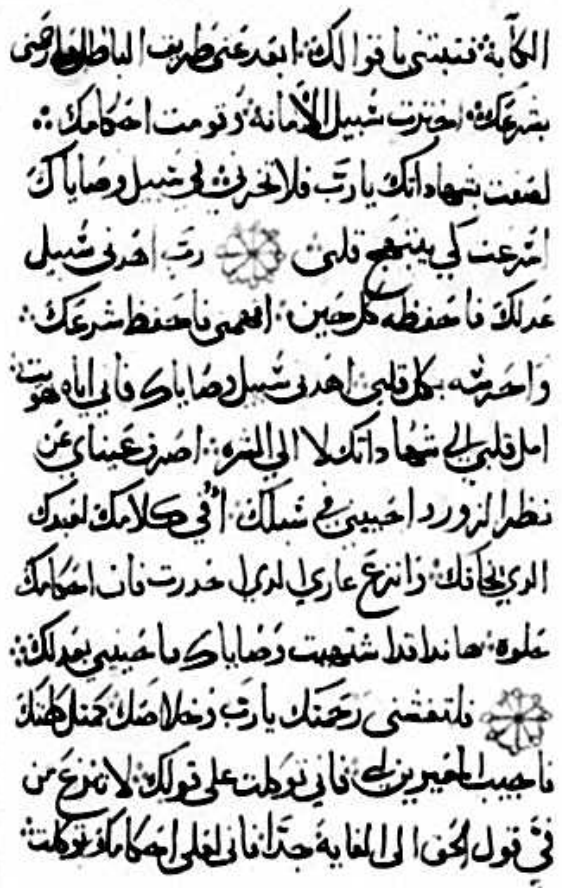 الكآبة فتبتنى باقوالك ابعد عنى طريق الباطل وارحمنى
بشرعك اخترت سبيل الأمانة ولم انس احكامك
لصقت بشهاداتك يارب فلا تخزني في سبيل وصاياك
اسرعت كي يبتهج قلبى رب اهدنى سبيل
عدلك فاحفظه كل حين افهمنى فاحفظ شرعك
واحرسه بكل قلبى اهدنى سبيل وصاياك فاني اياه هويت
امل قلبي الى شهاداتك لا الى الشره اصرف عيناي عن
نظر الزور واحييني في سبلك أوفي كلامك لعبدك
الدي يخافك وانزع عاري الدي حدرت فان احكامك
حلوة هاندا قد اشتهيت وصاياك فاحييني بعدلك
فلتغشنى رحمتك يارب وخلاصك كمتل كلمتك
فاجيب المعيرين لي فاني توكلت على قولك لا تنزع من
فيّ قول الحق الى الغاية جدا فانى على احكامك توكلت